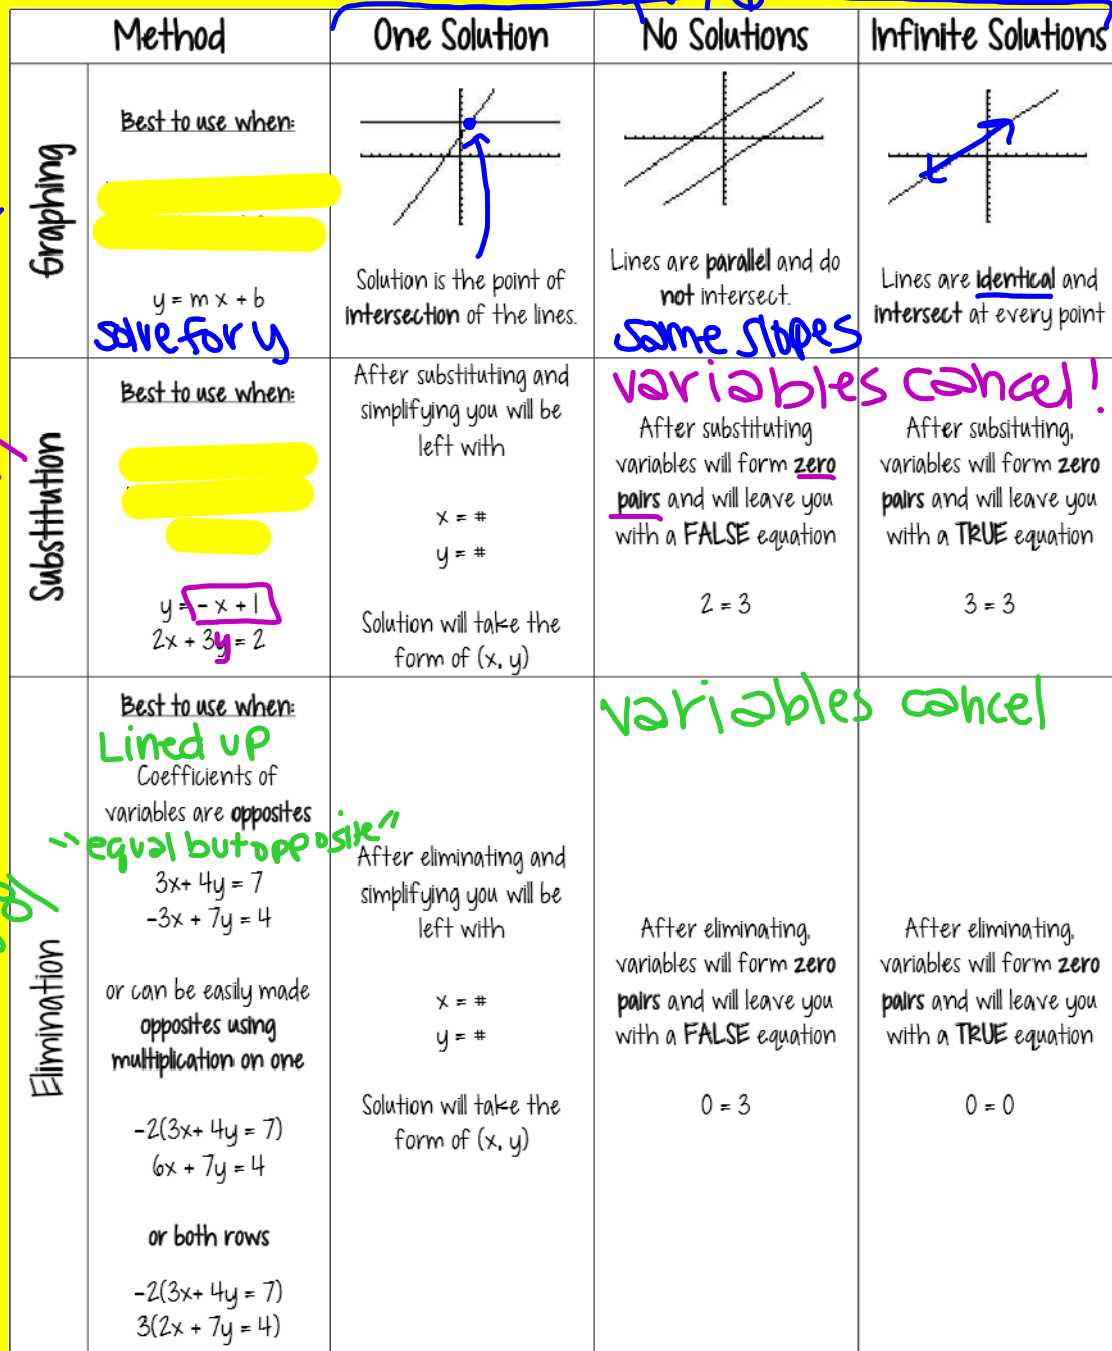 Method
One Solution
No Solutions
Infinite Solutions
Graphing
Best to use when:
y = m x + b
solve for y
Solution is the point of
intersection of the lines.
Lines are parallel and do
not intersect.
same slopes
Lines are identical and
intersect at every point
Substitution
Best to use when:
y = - x + 1
2x + 3y = 2
After substituting and
simplifying you will be
left with
x = #
y = #
Solution will take the
form of (x, y)
variables cancel!
After substituting
variables will form zero
pairs and will leave you
with a FALSE equation
2 = 3
After subsituting,
variables will form zero
pairs and will leave you
with a TRUE equation
3 = 3
Elimination
Best to use when:
Lined up
Coefficients of
variables are opposites
"equal but opposite"
3x+ 4y = 7
-3x + 7y = 4
or can be easily made
opposites using
multiplication on one
-2(3x+ 4y = 7)
6x + 7y = 4
or both rows
-2(3x+ 4y = 7)
3(2x + 7y = 4)
After eliminating and
simplifying you will be
left with
x = #
y = #
Solution will take the
form of (x, y)
variables cancel
After eliminating,
variables will form zero
pairs and will leave you
with a FALSE equation
0 = 3
After eliminating,
variables will form zero
pairs and will leave you
with a TRUE equation
0 = 0